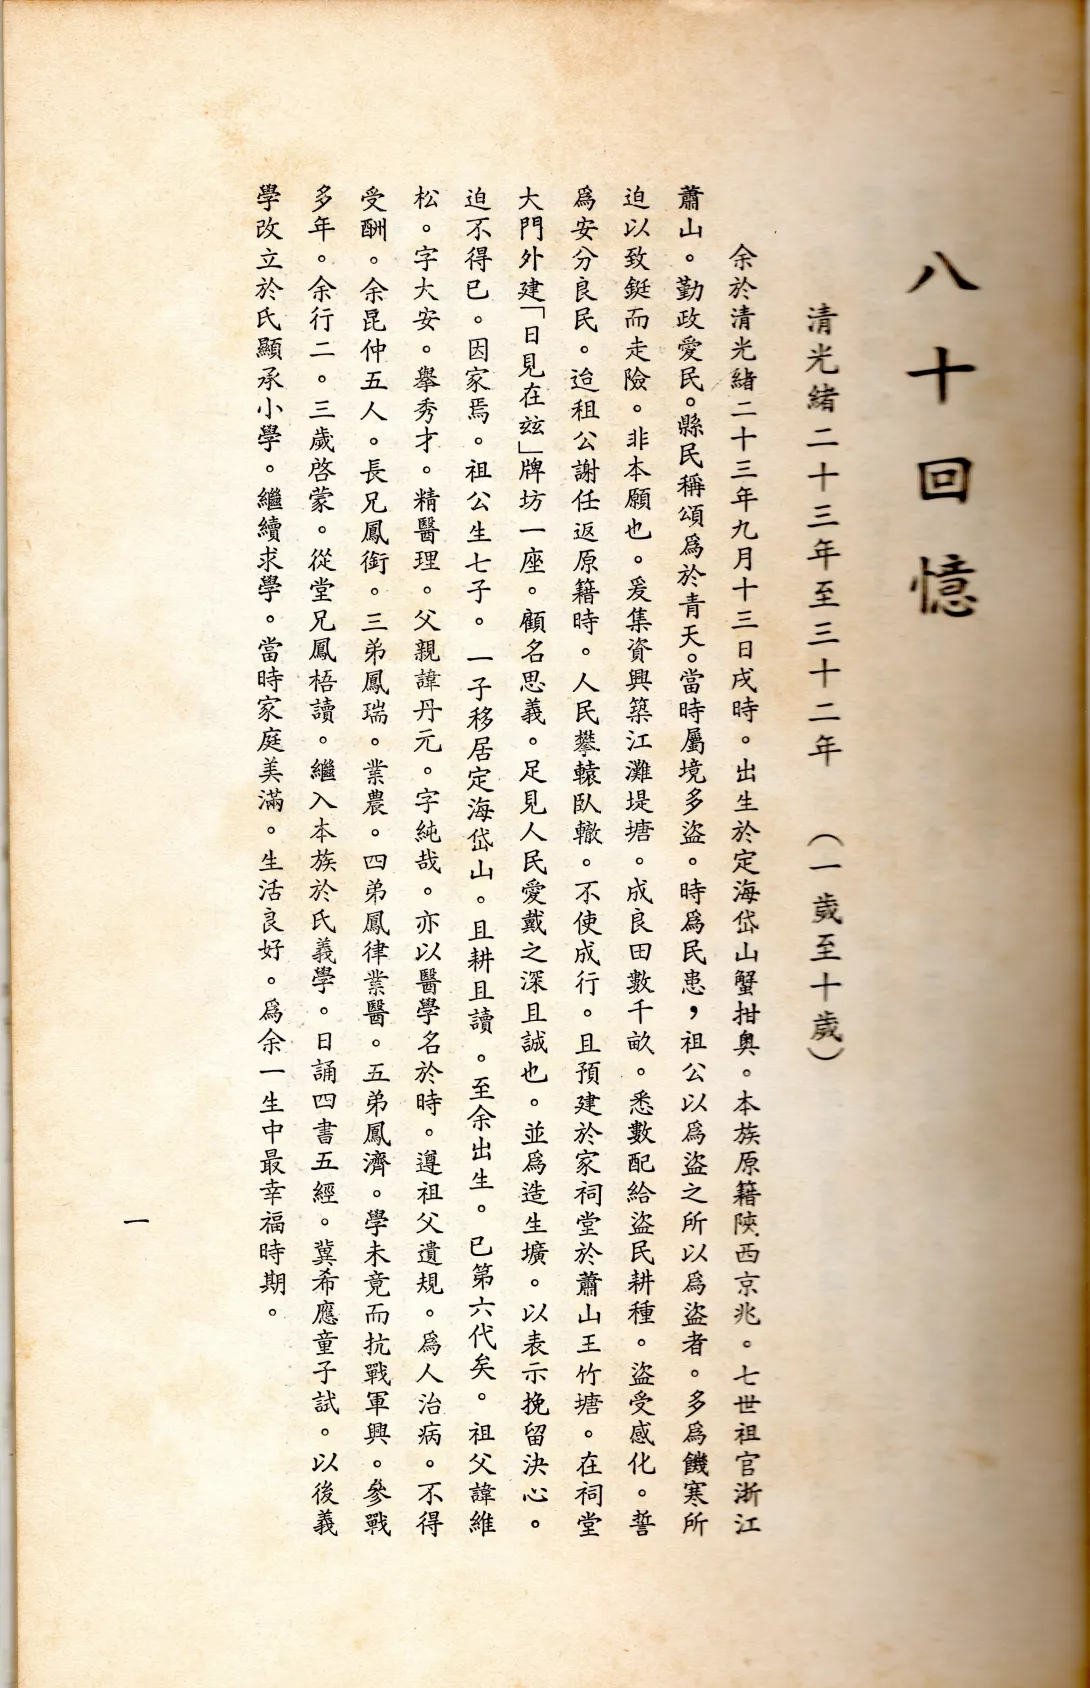 八十回憶
清光緒二十三年至三十二年　（一歲至十歲）
余於清光緒二十三年九月十三日戌時。出生於定海岱山蟹拑奧。本族原籍陝西京兆。七世祖官浙江
蕭山。勤政愛民。縣民稱頌爲於青天。當時屬境多盜。時爲民患，祖公以爲盜之所以爲盜者。多爲饑寒所
迫以致鋌而走險。非本願也。爰集資興築江灘堤塘。成良田數千畝。悉數配給盜民耕種。盜受感化。誓
爲安分良民。迨祖公謝任返原籍時。人民攀轅臥轍。不使成行。且預建於家祠堂於蕭山王竹塘。在祠堂
大門外建「日見在玆」牌坊一座。顧名思義。足見人民愛戴之深且誠也。並爲造生壙。以表示挽留決心。
迫不得已。因家焉。祖公生七子。一子移居定海岱山。且耕且讀。至余出生。已第六代矣。祖父諱維
松。字大安。舉秀才。精醫理。父親諱丹元。字純哉。亦以醫學名於時。遵祖父遺規。爲人治病。不得
受酬。余昆仲五人。長兄鳳銜。三弟鳳瑞。業農。四弟鳳律業醫。五弟鳳濟。學未竟而抗戰軍興。參戰
多年。余行二。三歲啓蒙。從堂兄鳳梧讀。繼入本族於氏義學。日誦四書五經。冀希應童子試。以後義
學改立於氏顯承小學。繼續求學。當時家庭美滿。生活良好。爲余一生中最幸福時期。
一